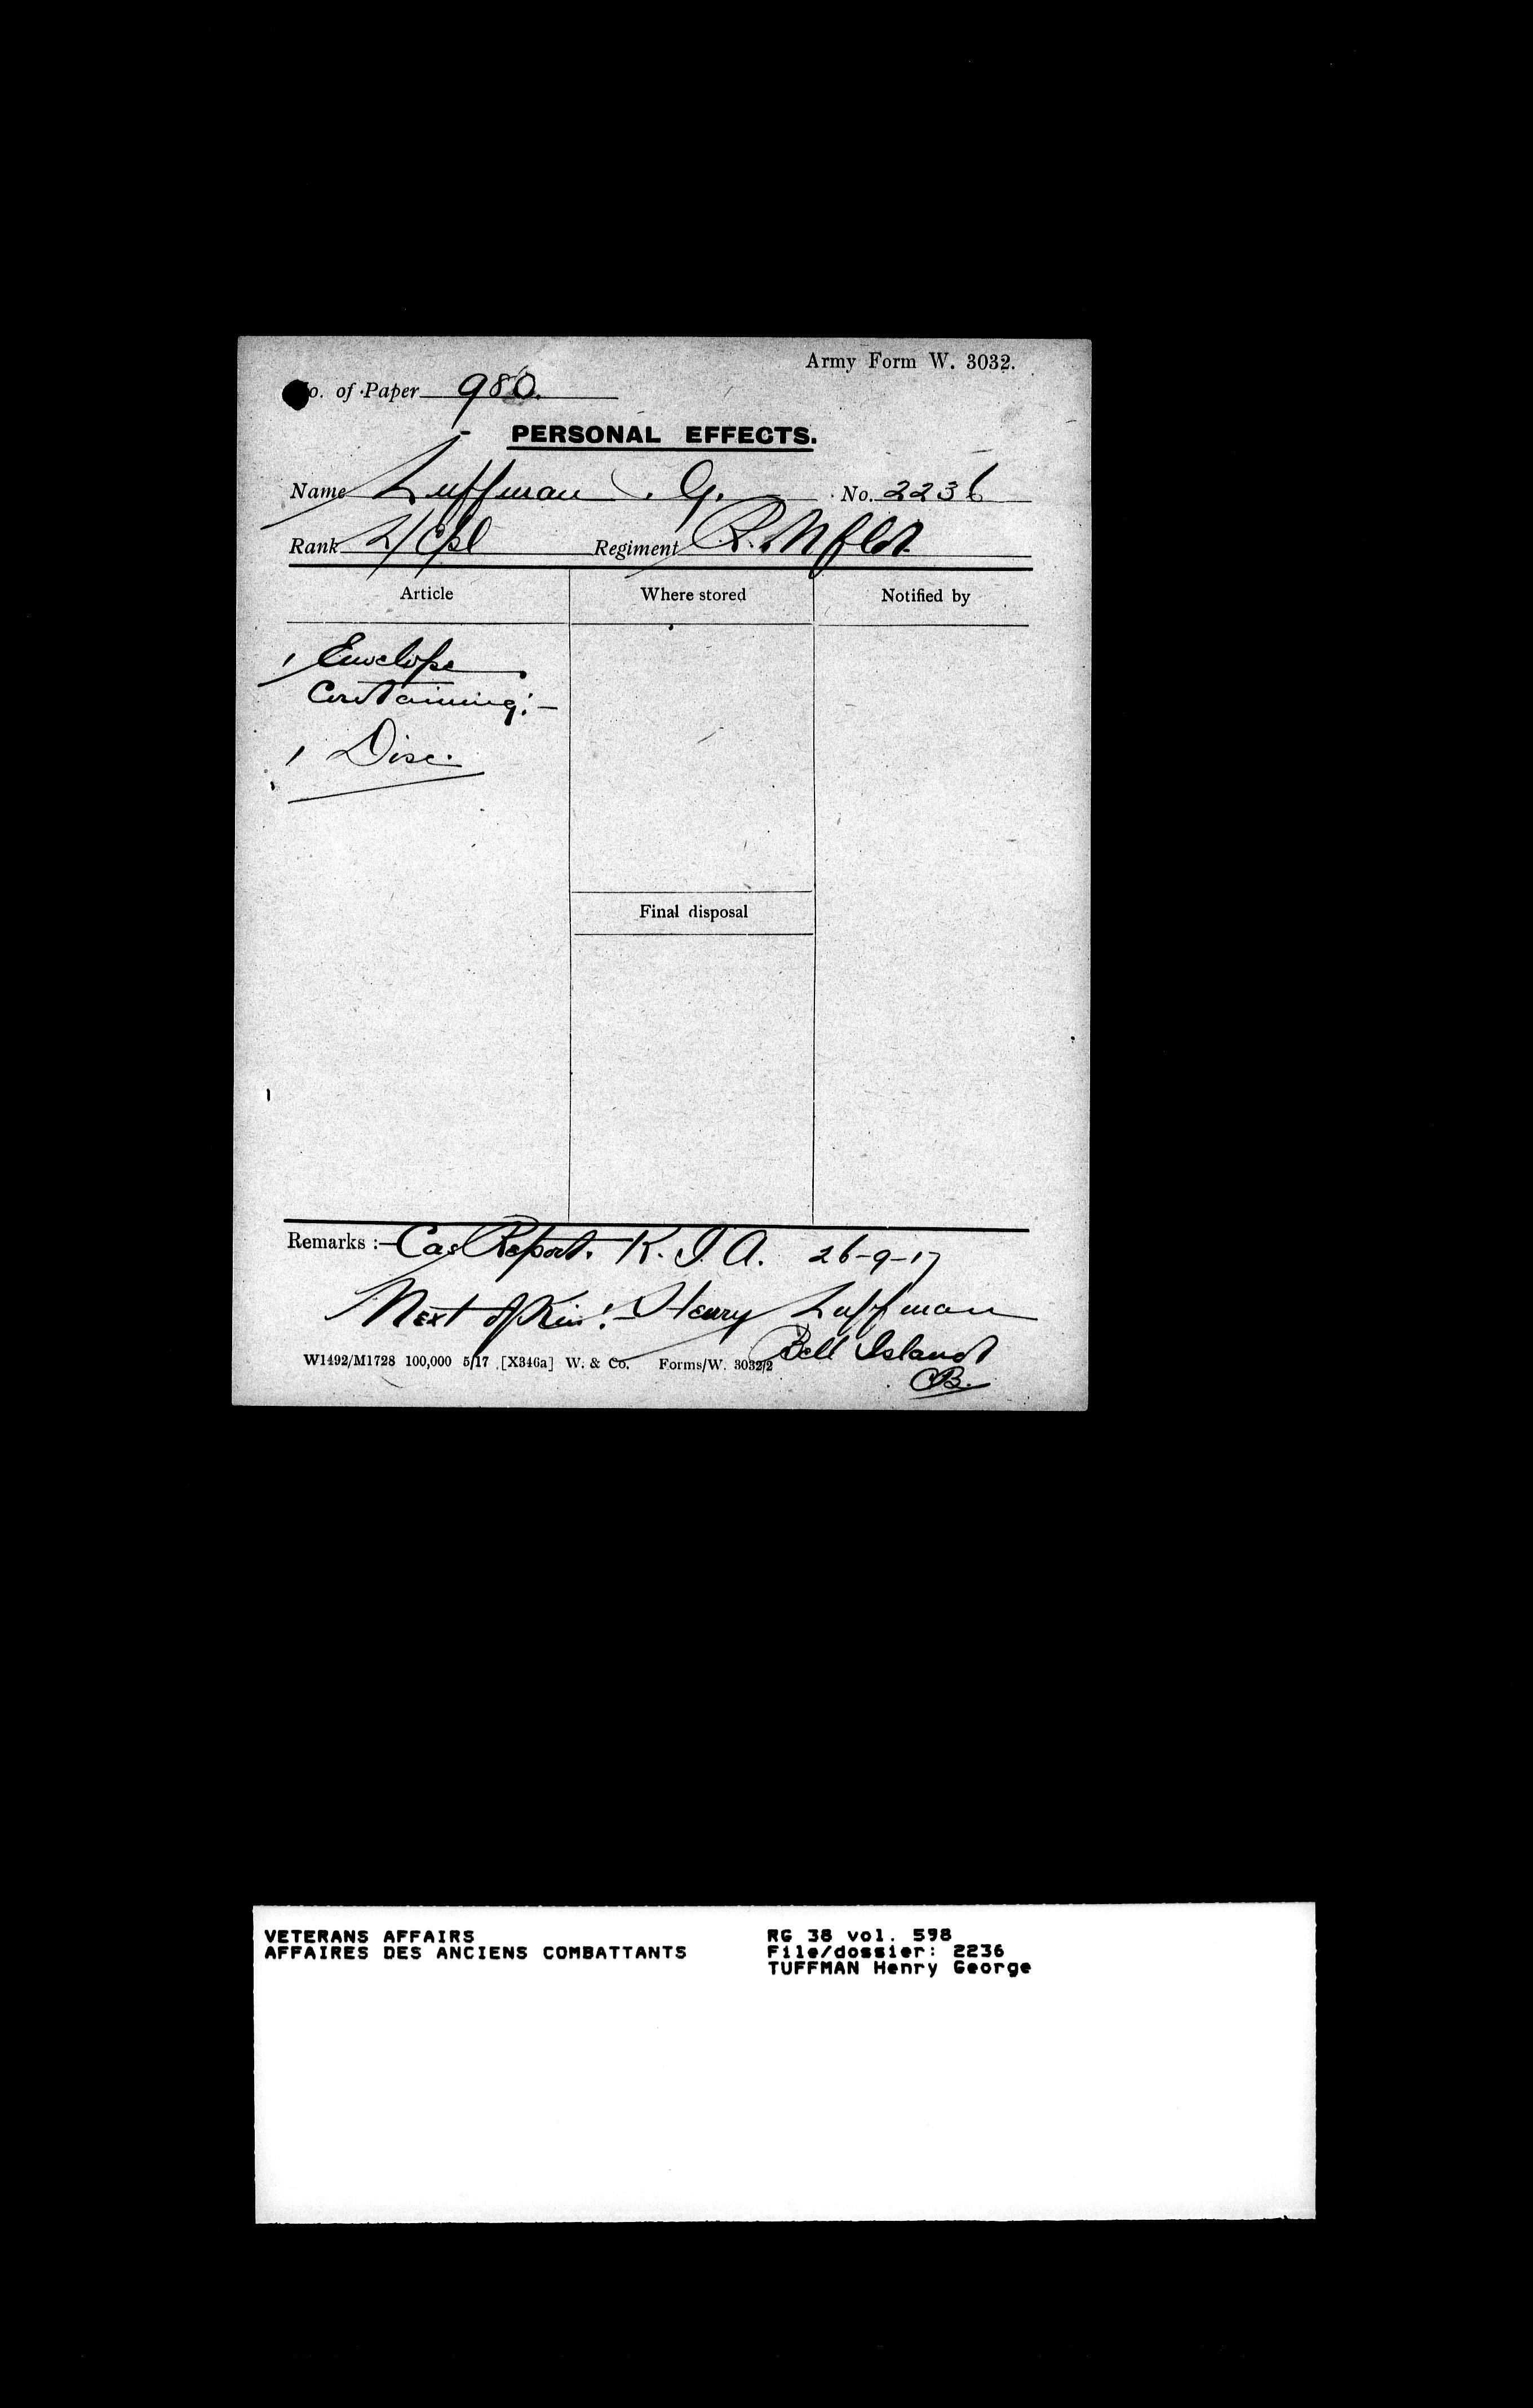 Army Form W. 3032.
No. of Paper 980.
PERSONAL EFFECTS.
Name Luffman . G. No. 2236
Rank L/Cpl Regiment R. Nfld.
Article Where stored Notified by
1 Envelope
Containing:-
1 Disc.
Final disposal
Remarks :- Cas Report. K. I. A. 26-9-17
Next of Kin:- Henry Luffman
Bell Island
W1492/M1728 100,000 5/17 [X346a] W. & Co. Forms/W. 3032/2
CB.
VETERANS AFFAIRS RG 38 vol. 598
AFFAIRES DES ANCIENS COMBATTANTS File/dossier: 2236
TUFFMAN Henry George